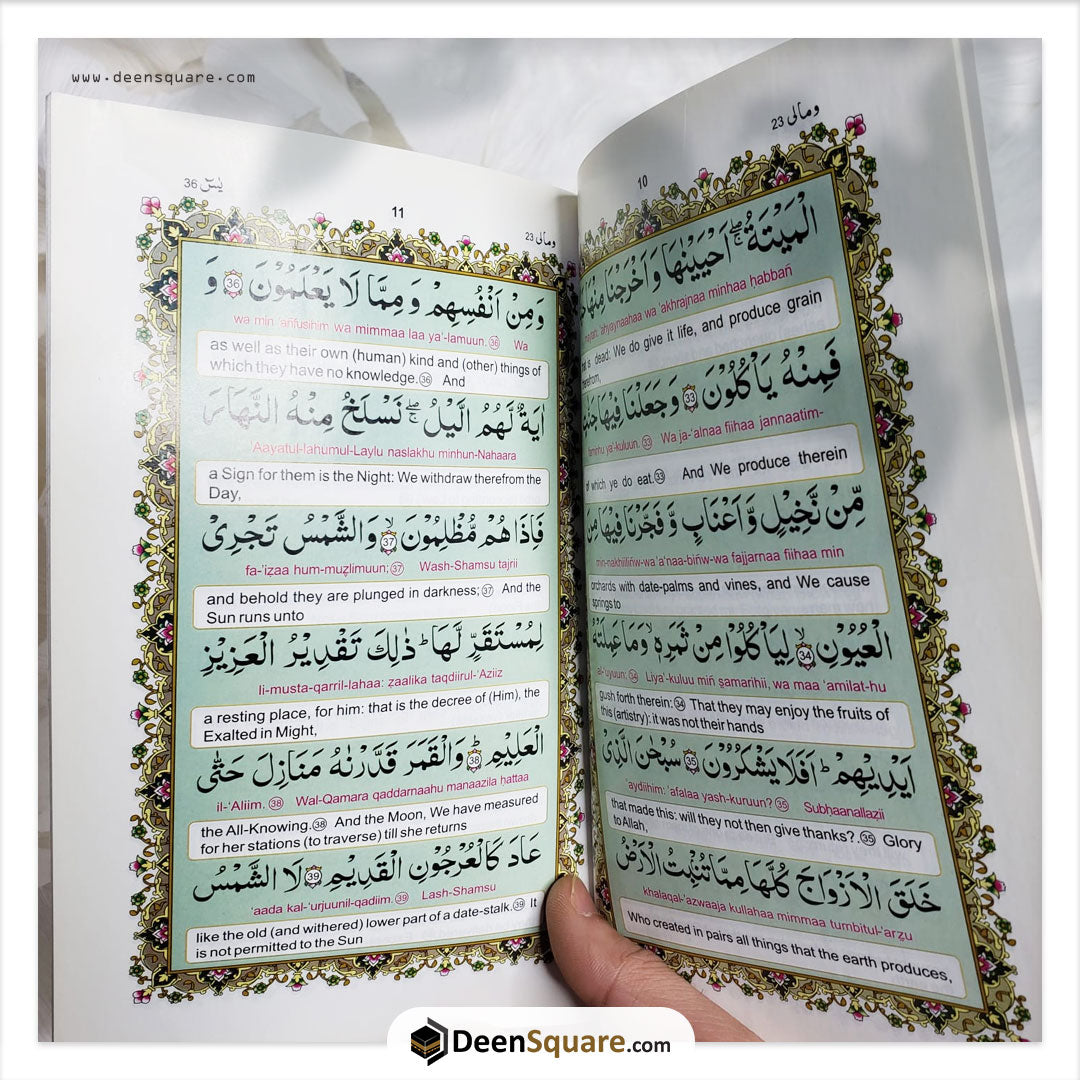 www.deensquare.com
10
ومالی 23
الْمَيْتَةُ ۖۚ اَحْيَيْنٰهَا وَاَخْرَجْنَا مِنْهَا
'ahyaynaahaa wa 'akhrajnaa minhaa ḥabbañ
is dead: We do give it life, and produce grain
therefrom,
فَمِنْهُ يَاْكُلُوْنَ ۳۳ وَجَعَلْنَا فِيْهَا
faminhu ya'-kuluun. 33 Wa ja-'alnaa fiihaa jannaatim-
of which ye do eat.33 And We produce therein
مِّنْ نَّخِيْلٍ وَّاَعْنَابٍ وَّفَجَّرْنَا فِيْهَا مِنَ
min-nakhiiliñw-wa 'a'-naa-biñw-wa fajjarnaa fiihaa min
orchards with date-palms and vines, and We cause
springs to
الْعُيُوْنِ ۙ 34 لِيَاْكُلُوْا مِنْ ثَمَرِهٖ ۙ وَمَا عَمِلَتْهُ
al-'uyuun: 34 Liya'-kuluu miñ s̱amarihii, wa maa 'amilat-hu
gush forth therein: 34 That they may enjoy the fruits of
this (artistry): it was not their hands
اَيْدِيْهِمْ ؕ اَفَلَا يَشْكُرُوْنَ 35 سُبْحٰنَ الَّذِيْ
'aydiihim: 'afalaa yash-kuruun? 35 Subḥaanallazii
that made this: will they not then give thanks?.35 Glory
to Allah,
خَلَقَ الْاَزْوَاجَ كُلَّهَا مِمَّا تُنْۢبِتُ الْاَرْضُ
khalaqal-'azwaaja kullahaa mimmaa tumbitul-'arẓu
Who created in pairs all things that the earth produces,
يٰسٓ 36
11
ومالی 23
وَمِنْ اَنْفُسِهِمْ وَمِمَّا لَا يَعْلَمُوْنَ 36 وَ
wa min 'añfusihim wa mimmaa laa ya'-lamuun. 36 Wa
as well as their own (human) kind and (other) things of
which they have no knowledge.36 And
اٰيَةٌ لَّهُمُ الَّيْلُ ۖۚ نَسْلَخُ مِنْهُ النَّهَارَ
'Aayatul-lahumul-Laylu naslakhu minhun-Nahaara
a Sign for them is the Night: We withdraw therefrom the
Day,
فَاِذَا هُمْ مُّظْلِمُوْنَ ۙ 37 وَالشَّمْسُ تَجْرِيْ
fa-'iẕaa hum-muẓlimuun; 37 Wash-Shamsu tajrii
and behold they are plunged in darkness; 37 And the
Sun runs unto
لِمُسْتَقَرٍّ لَّهَا ؕ ذٰلِكَ تَقْدِيْرُ الْعَزِيْزِ
li-musta-qarril-lahaa: ẕaalika taqdiirul-'Aziiz
a resting place, for him: that is the decree of (Him), the
Exalted in Might,
الْعَلِيْمِ ؕ 38 وَالْقَمَرَ قَدَّرْنٰهُ مَنَازِلَ حَتّٰى
il-'Aliim. 38 Wal-Qamara qaddarnaahu manaazila ḥattaa
the All-Knowing.38 And the Moon, We have measured
for her stations (to traverse) till she returns
عَادَ كَالْعُرْجُوْنِ الْقَدِيْمِ 39 لَا الشَّمْسُ
'aada kal-'urjuunil-qadiim. 39 Lash-Shamsu
like the old (and withered) lower part of a date-stalk.39 It
is not permitted to the Sun
DeenSquare.com